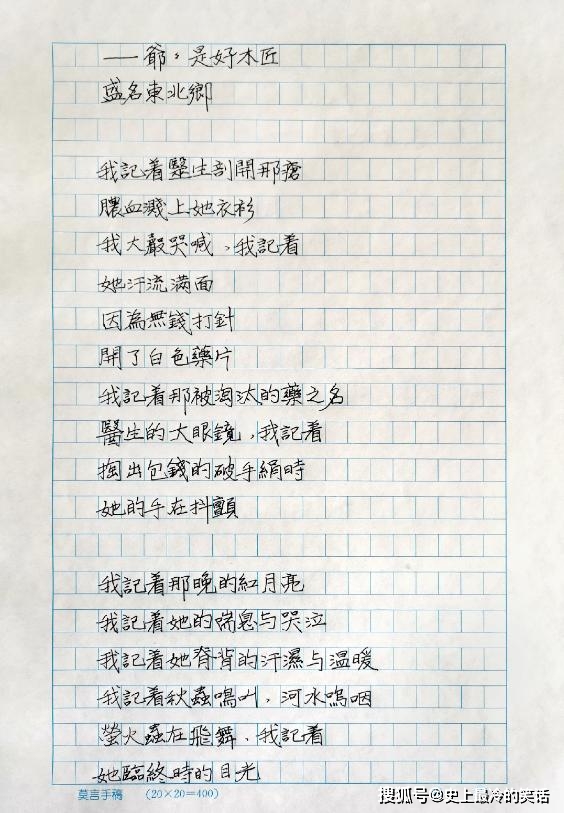 ——爺爺是好木匠
盛名東北鄉
我記着醫生剖開那瘡
膿血濺上她衣衫
我大聲哭喊，我記着
她汗流滿面
因為無錢打針
開了白色藥片
我記着那被淘汰的藥之名
醫生的大眼鏡，我記着
掏出包錢的破手絹時
她的手在抖顫
我記着那晚的紅月亮
我記着她的喘息与哭泣
我記着她脊背的汗濕与温暖
我記着秋蟲鳴叫，河水嗚咽
螢火蟲在飛舞，我記着
她臨終時的目光
莫言手稿 (20×20=400)
搜狐号@史上最冷的笑话